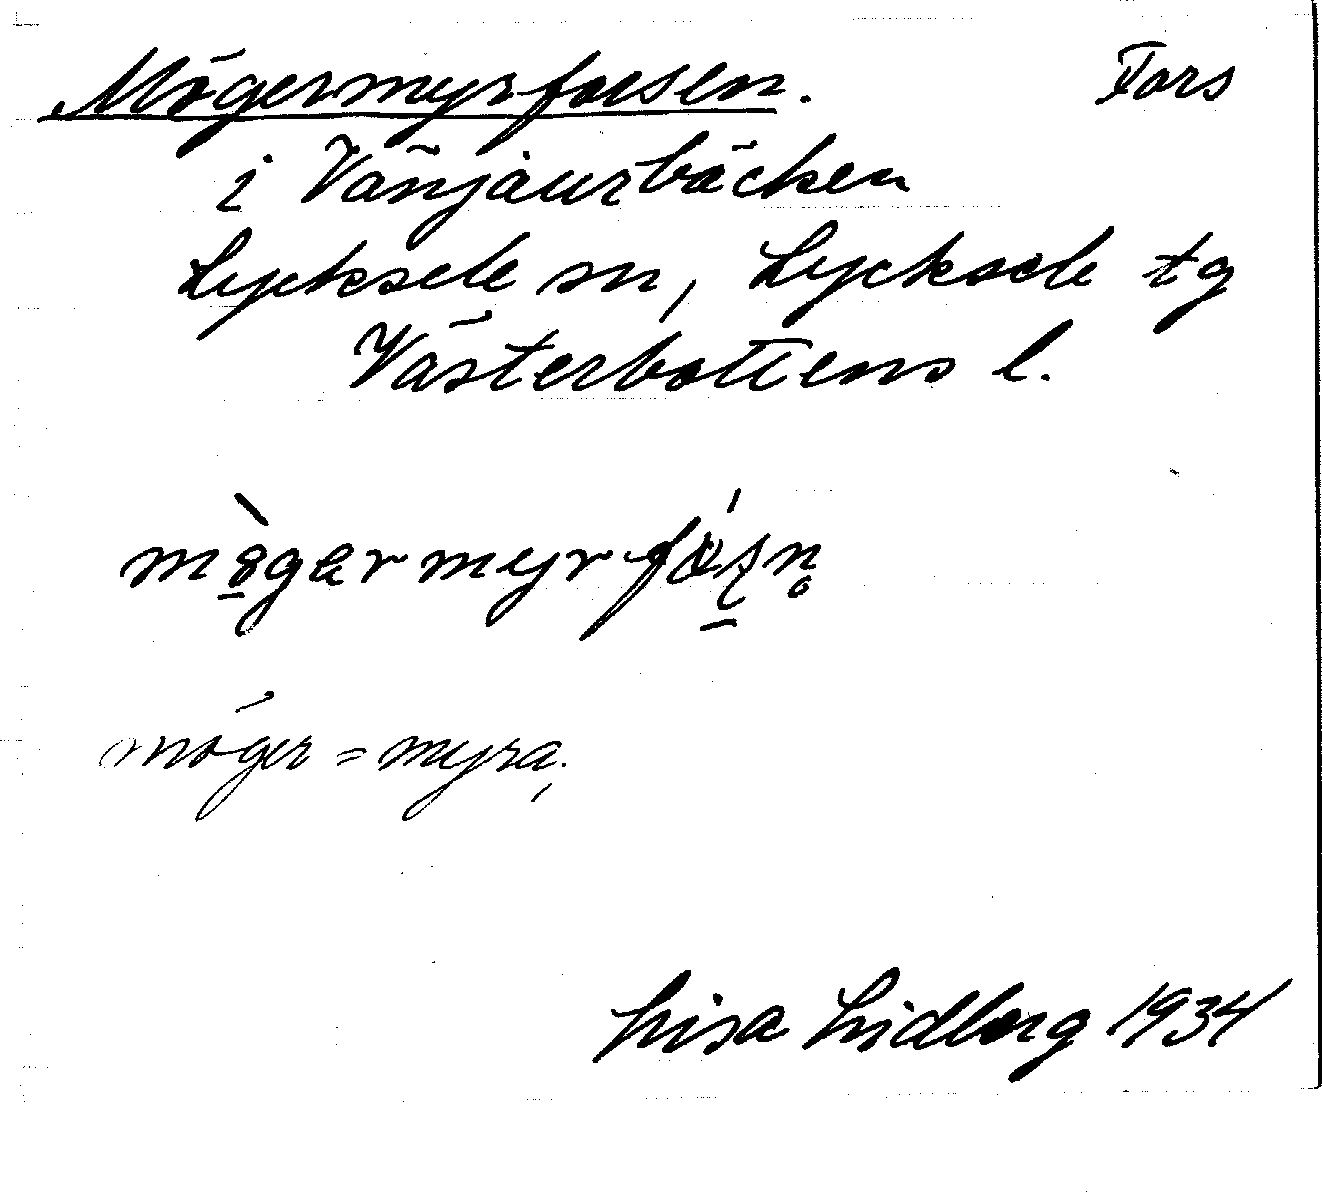 Mögermyrforsen. Fors
i Vänjaurbäcken
Lycksele sn, Lycksele tg
Västerbottens l.
möger = myra,
Lisa Lidberg 1934